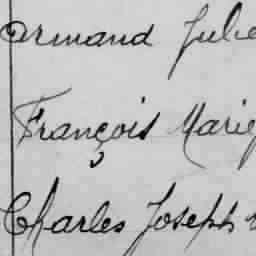 armand Jule
François Marie
Charles Joseph